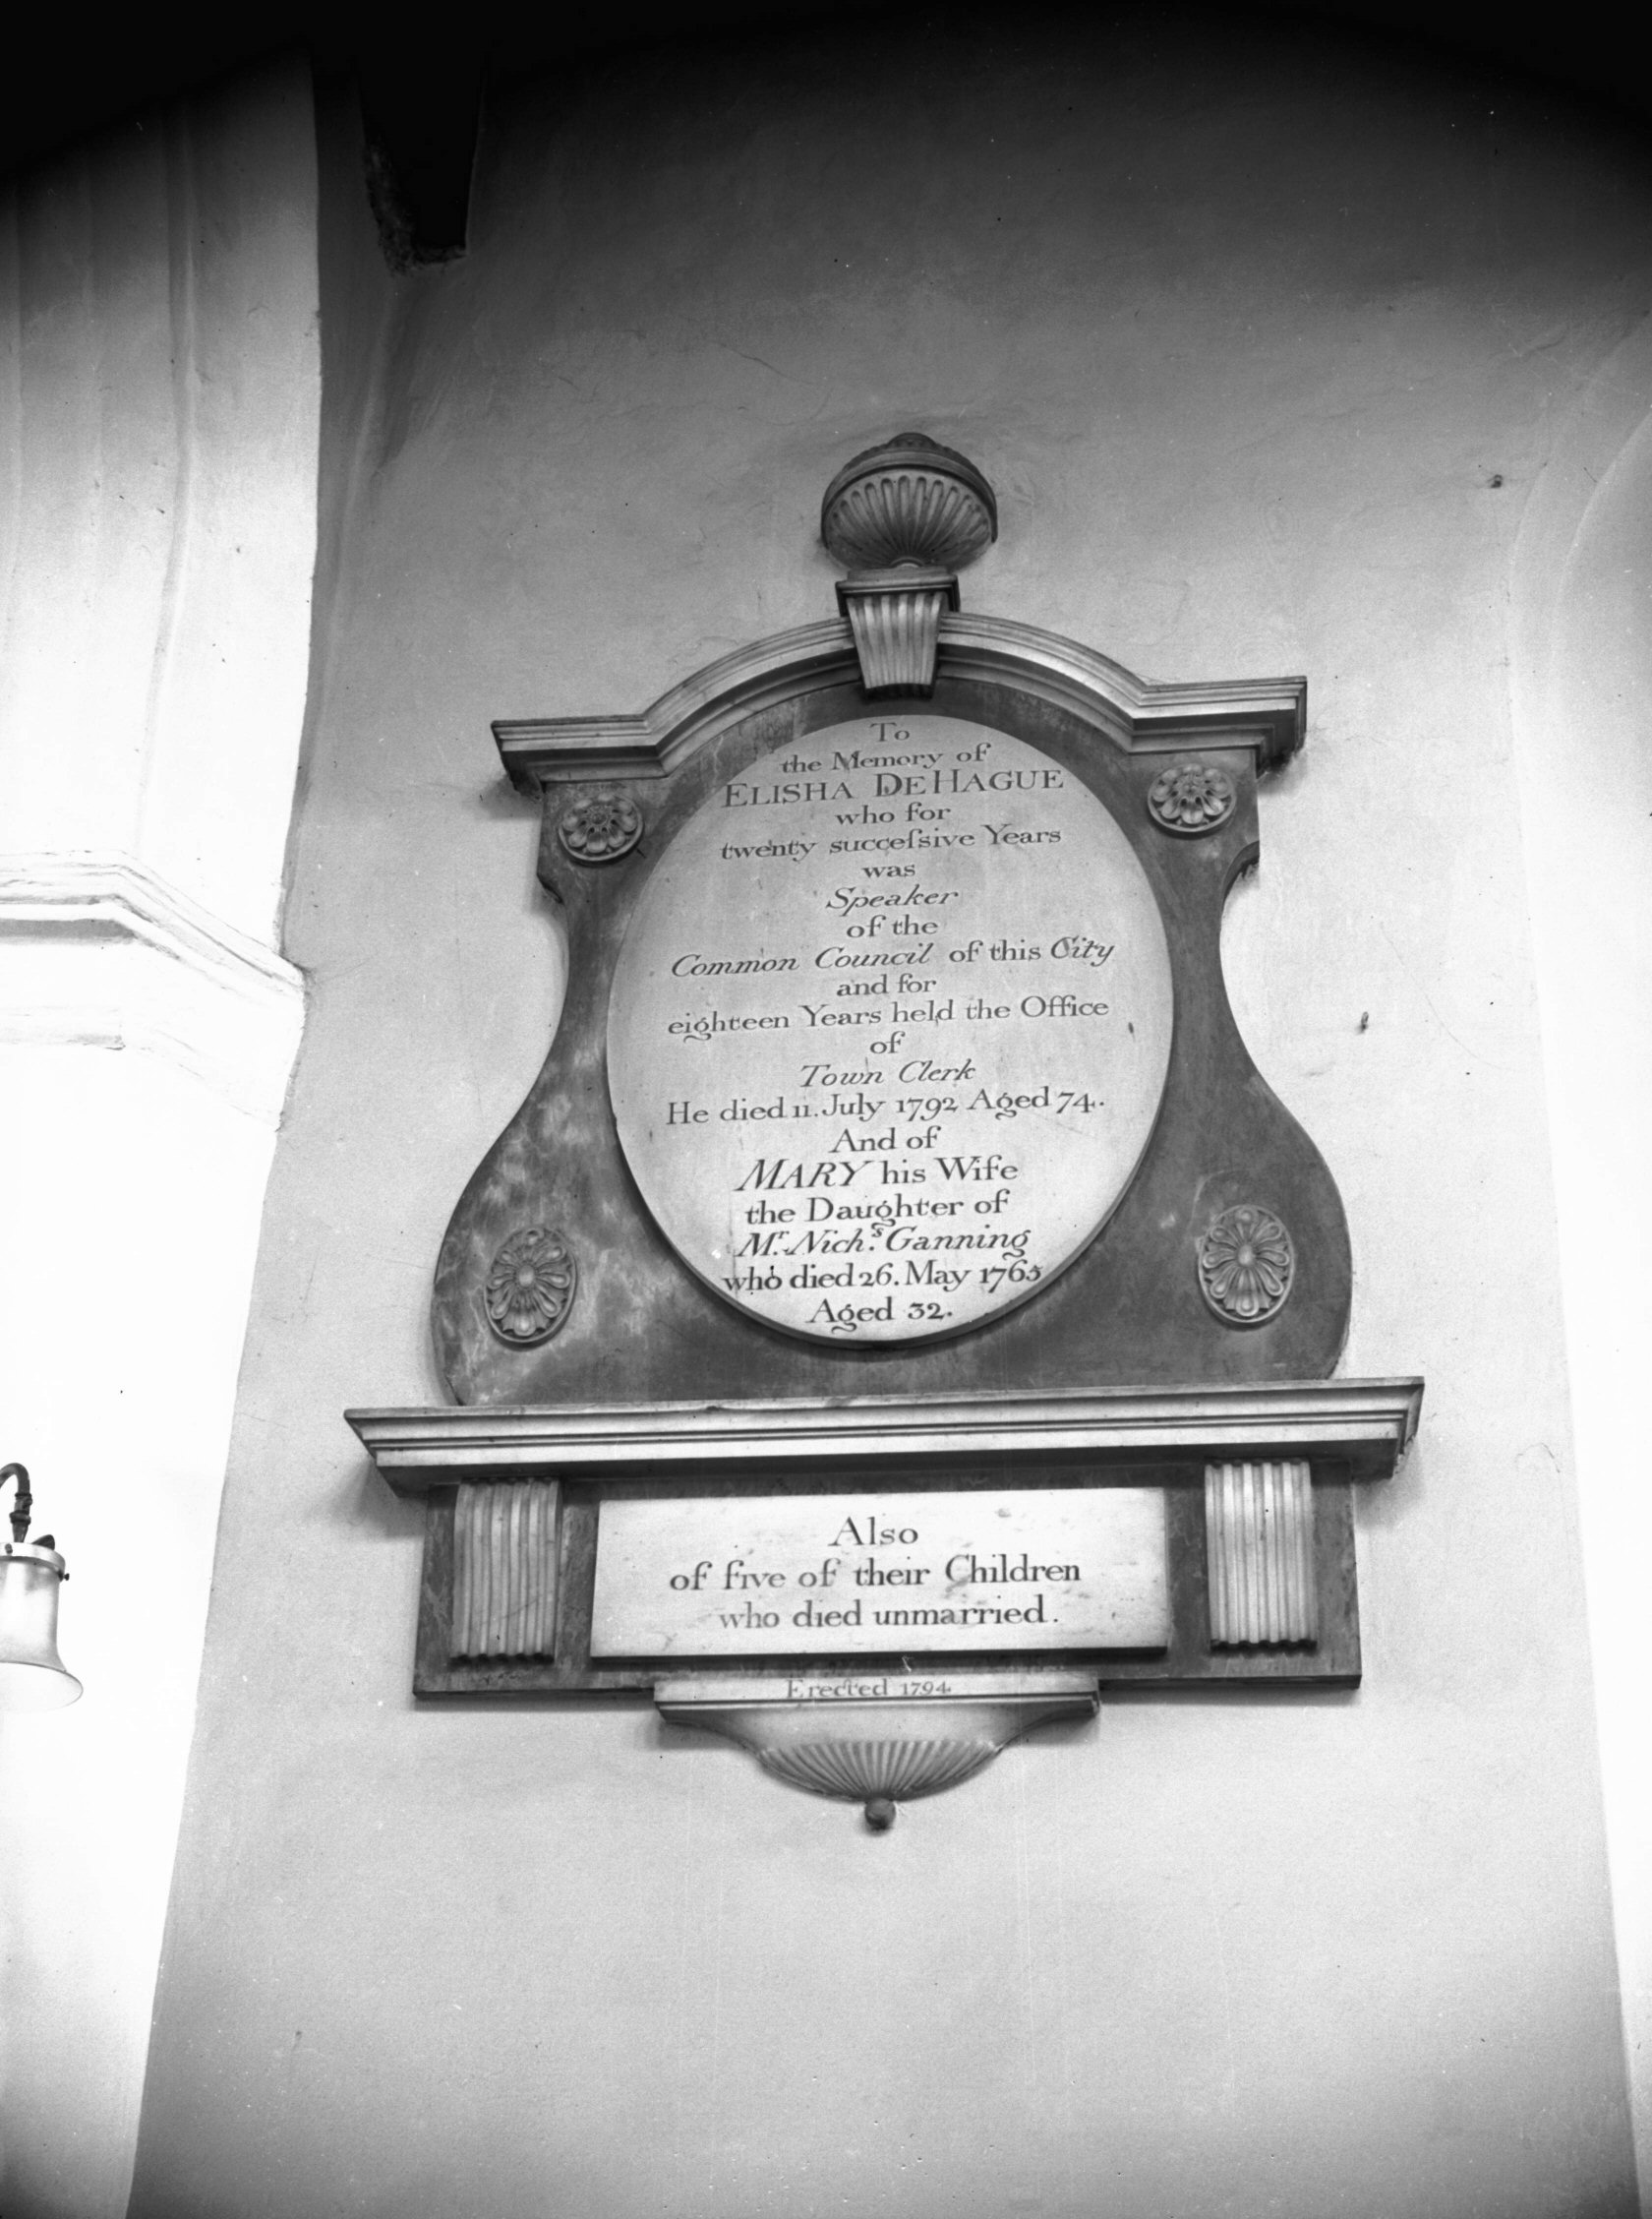 To
the Memory of
ELISHA DE HAGUE
who for
twenty succeſsive Years
was
Speaker
of the
Common Council of this City
and for
eighteen Years held the Office
of
Town Clerk
He died 11. July 1792 Aged 74.
And of
MARY his Wife
the Daughter of
Mr. Nichs. Ganning
who died 26. May 1765
Aged 32.
Also
of five of their Children
who died unmarried.
Erected 1794